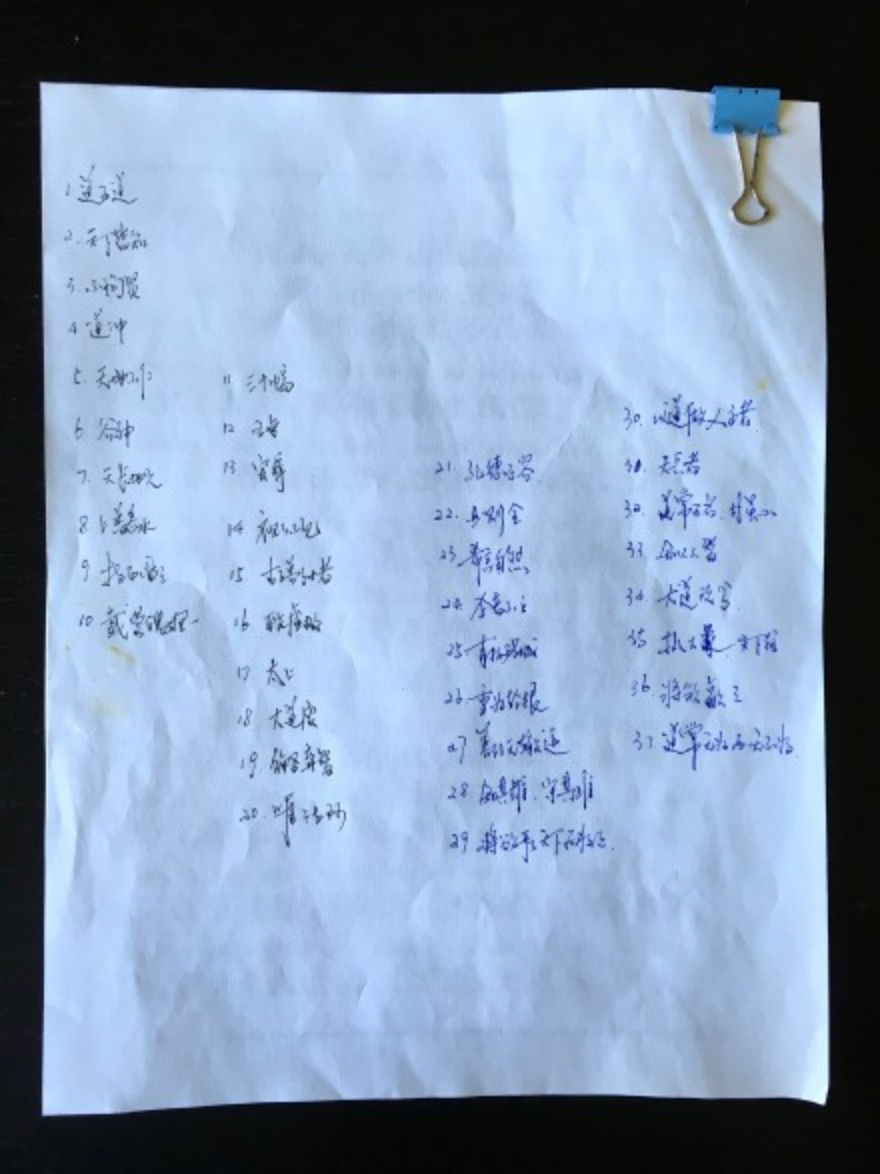 1 道可道
2. 天下皆知
3. 不尚贤
4 道冲
5. 天地不仁
6 谷神
7. 天长地久
8 上善若水
9 持而盈之
10 载营魄抱一
11 三十辐
12 五色
13 宠辱
14 视之不见
15 古之善为士者
16 致虚极
17 太上
18 大道废
19 绝圣弃智
20. 唯之与阿
21. 孔德之容
22. 曲则全
23. 希言自然
24. 企者不立
25 有物混成
26 重为轻根
27 善行无辙迹
28. 知其雄、守其雌
29 将欲取天下而为之.
30. 以道佐人主者
31. 夫兵者
32. 道常无名.
33. 知人者智
34. 大道氾兮
35 执大象 天下往
36 将欲歙之
37. 道常无为而无不为.